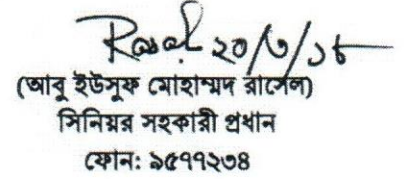 Rasel ২০/৬/১৮
(আবু ইউসুফ মোহাম্মদ রাসেল)
সিনিয়র সহকারী প্রধান
ফোন: ৯৫৭৭২৩৪